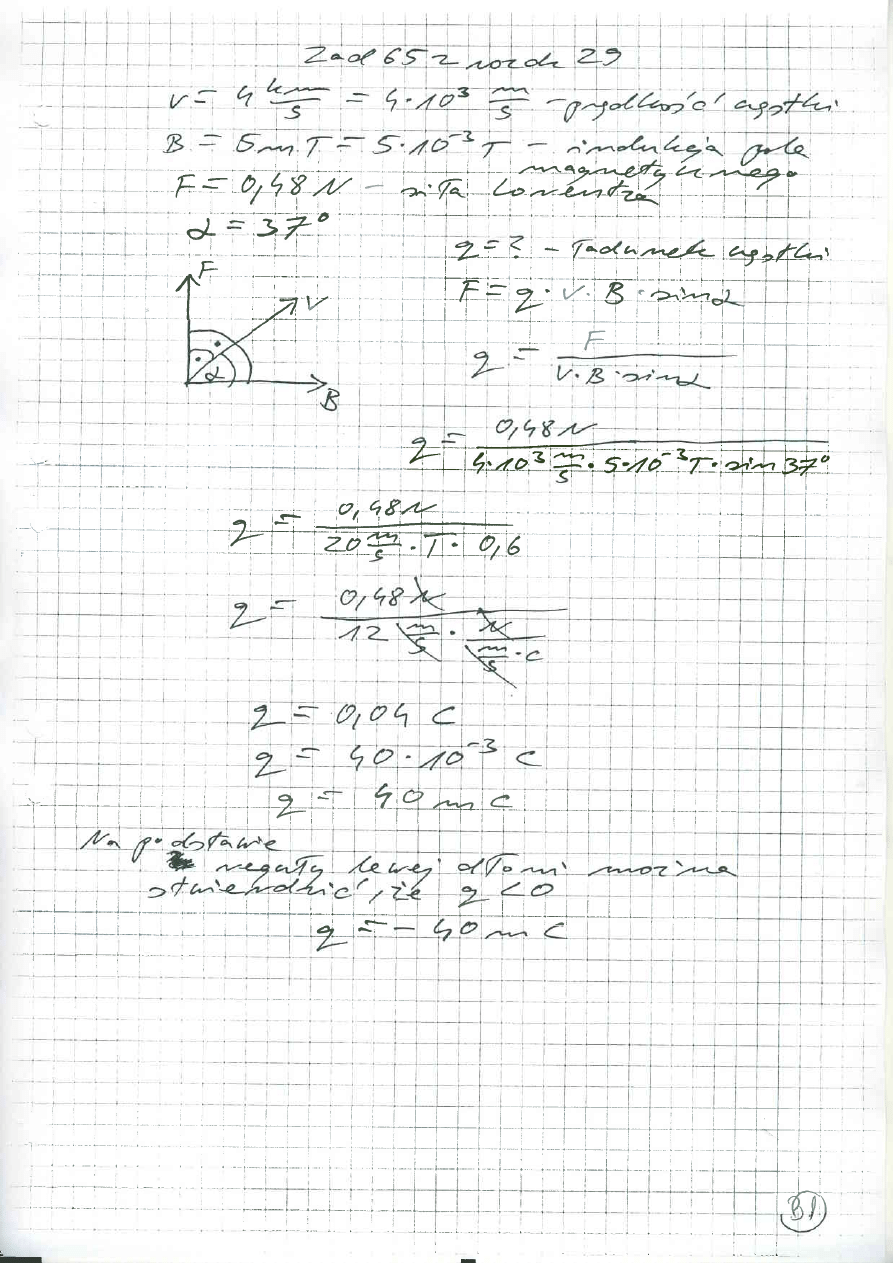 Zad 65 z rozdz 29
v = 4 km/s = 4·10³ m/s – prędkość cząstki
B = 5mT = 5·10⁻³ T – indukcja pola
magnetycznego
F = 0,48 N – siła Lorentza
α = 37°
q = ? – ładunek cząstki
F = q · v · B · sinα
F
v
α
B
q = F / (v · B · sinα)
q = 0,48 N / (4·10³ m/s · 5·10⁻³ T · sin 37°)
q = 0,48 N / (20 m/s · T · 0,6)
q = 0,48 N / (12 m/s · N / (m/s · C))
q = 0,04 C
q = 40 · 10⁻³ C
q = 40 mC
Na podstawie
reguły lewej dłoni można
stwierdzić, że q < 0
q = – 40 mC